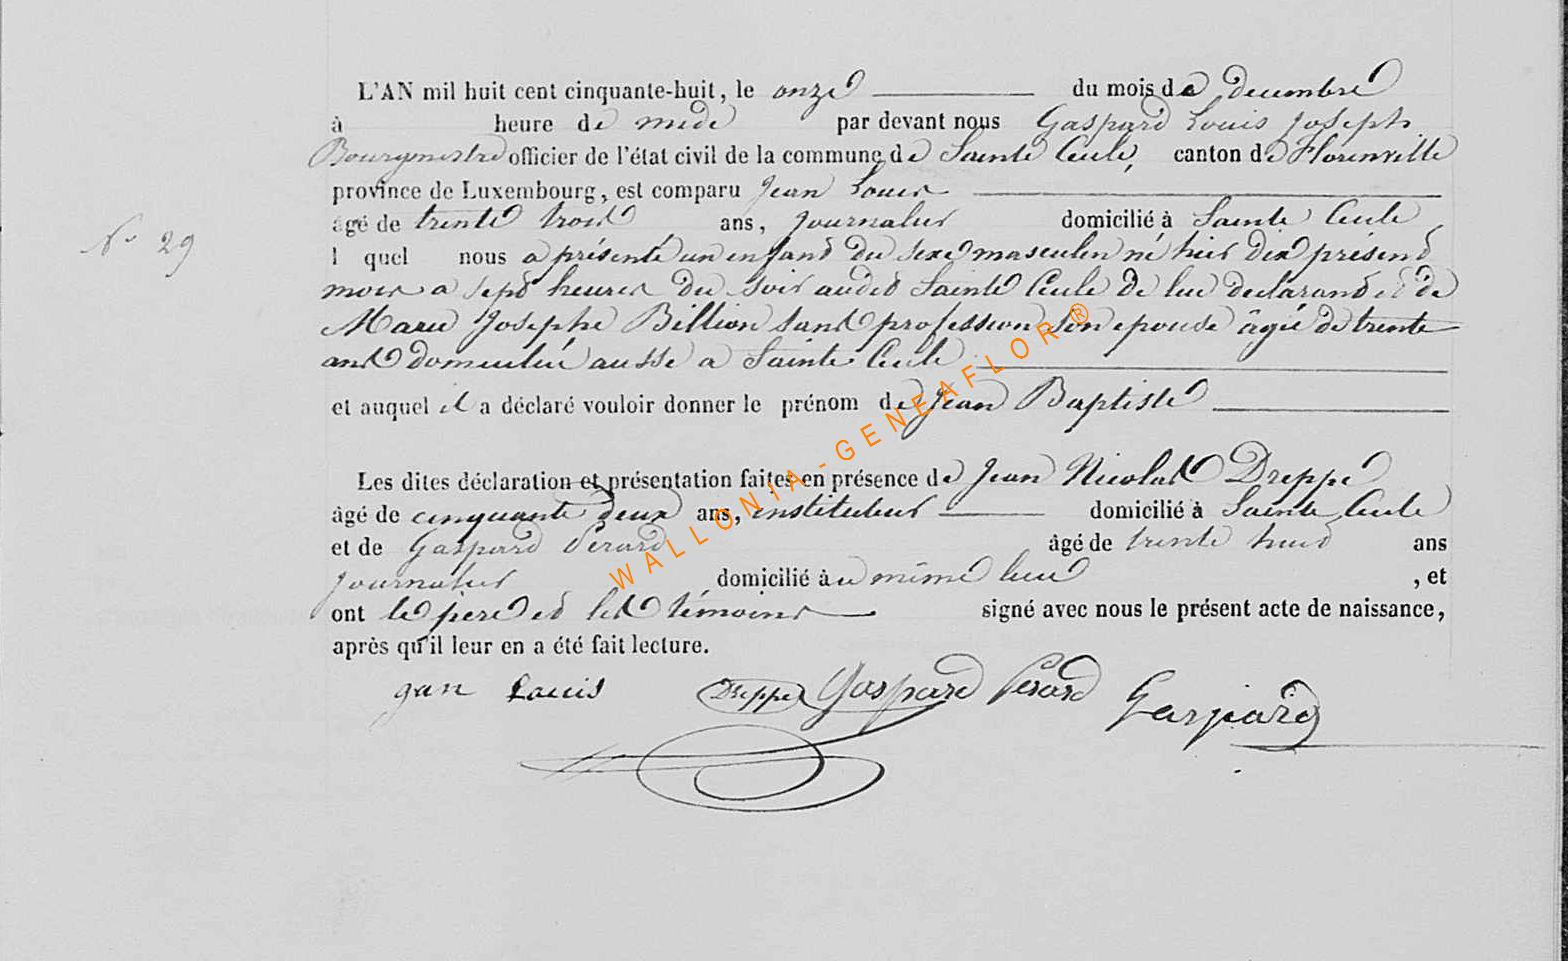 L'AN mil huit cent cinquante-huit, le onze du mois de decembre
à heure de midi par devant nous Gaspard Louis Joseph
Bourgmestre officier de l'état civil de la commune de Sainte Cecile, canton de Florenville
province de Luxembourg, est comparu Jean Louis
âgé de trente trois ans, journalier domicilié à Sainte Cecile
N° 29
l quel nous a présenté un enfant du sexe masculin né hier dix présent
mois a sept heures du soir audit Sainte Cecile de lui declarant et de
Marie Josephe Billion sans profession son epouse âgée de trente
ans domiciliée aussi a Sainte Cecile
et auquel il a déclaré vouloir donner le prénom de Jean Baptiste
Les dites déclaration et présentation faites en présence de Jean Nicolas Dreppe
âgé de cinquante deux ans, instituteur domicilié à Sainte Cecile
et de Gaspard Pérard âgé de trente huit ans
journalier domicilié au même lieu, et
ont le pere et les témoins signé avec nous le présent acte de naissance,
après qu'il leur en a été fait lecture.
gan Louis Dreppe Gaspard Perard Gaspard
WALLONIA-GENEAFLOR®